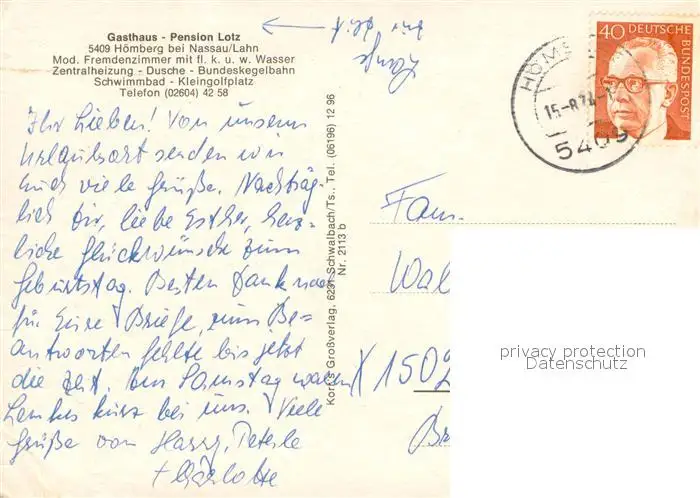 Gasthaus - Pension Lotz
5409 Hömberg bei Nassau/Lahn
Mod. Fremdenzimmer mit fl. k. u. w. Wasser
Zentralheizung - Dusche - Bundeskegelbahn
Schwimmbad - Kleingolfplatz
Telefon (02604) 42 58
Ihr Lieben! Von unserem
Urlaubsort senden wir
Euch viele Grüße. Nachträg-
lich Dir, liebe Esther, herz-
liche Glückwünsche zum
Geburtstag. Besten Dank
für Eure Briefe, zum Be-
antworten fehlte bis jetzt
die Zeit. Am Samstag waren
kurz bei uns. Viele
Grüße von Harry, Peterle
+ Charlotte
Korr's Großverlag, 6231 Schwalbach/Ts., Tel. (06196) 12 96
Nr. 2113 b
40 DEUTSCHE
BUNDESPOST
15-8.74-
5409
Fam.
Wal
X 1502
privacy protection
Datenschutz